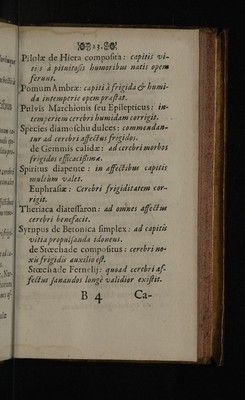 13.
Pilulæ de Hiera composita: capitis vi-
tiis à pituitosis humoribus natis opem
ferunt.
Pomum Ambræ: capiti à frigida & humi-
da intemperie opem præstat.
Pulvis Marchionis seu Epilepticus: in-
temperiem cerebri humidam corrigit.
Species diamoschu dulces: commendan-
tur ad cerebri affectus frigidos.
de Gemmis calidæ: ad cerebri morbos
frigidos efficacissimæ.
Spiritus diapente: in affectibus capitis
multùm valet.
Euphrasiæ: Cerebri frigiditatem cor-
rigit.
Theriaca diatessaron: ad omnes affectus
cerebri benefacit.
Syrupus de Betonica simplex: ad capitis
vitia propulsanda idoneus.
de Stœchade compositus: cerebri no-
xiis frigidis auxilio est.
Stœchade Fernelij: quoad cerebri af-
fectus sanandos longè validior existit.
B 4 Ca-